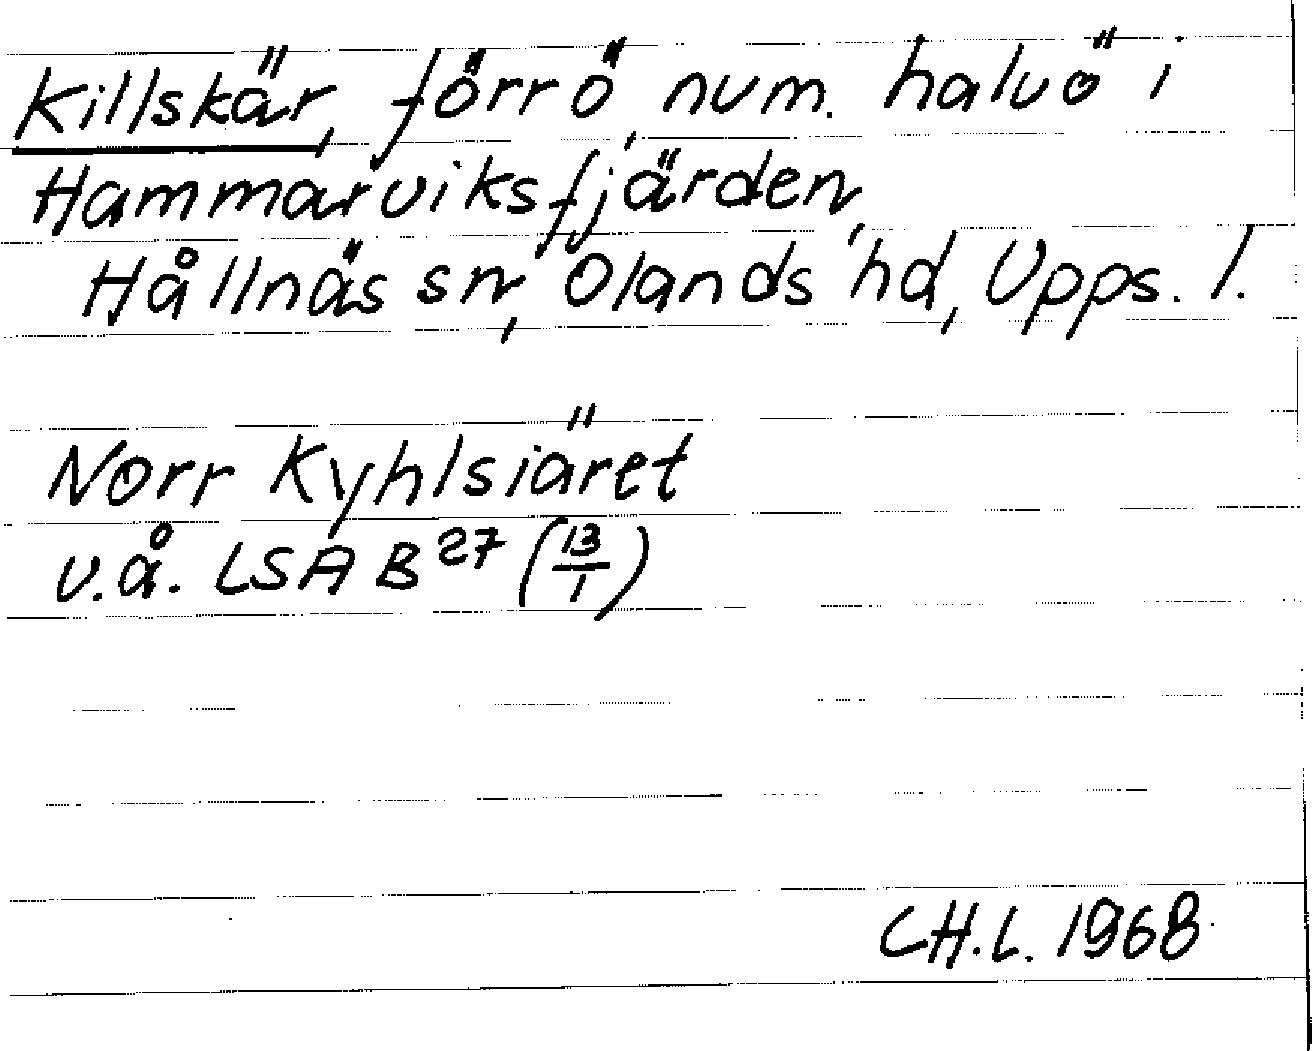 Killskär, förr ö, num. halvö i
Hammarviksfjärden,
Hållnäs sn, Olands hd, Upps. l.
Norr Kyhlsiäret
u.å. LSA B 27 (13/1)
CH.L. 1968